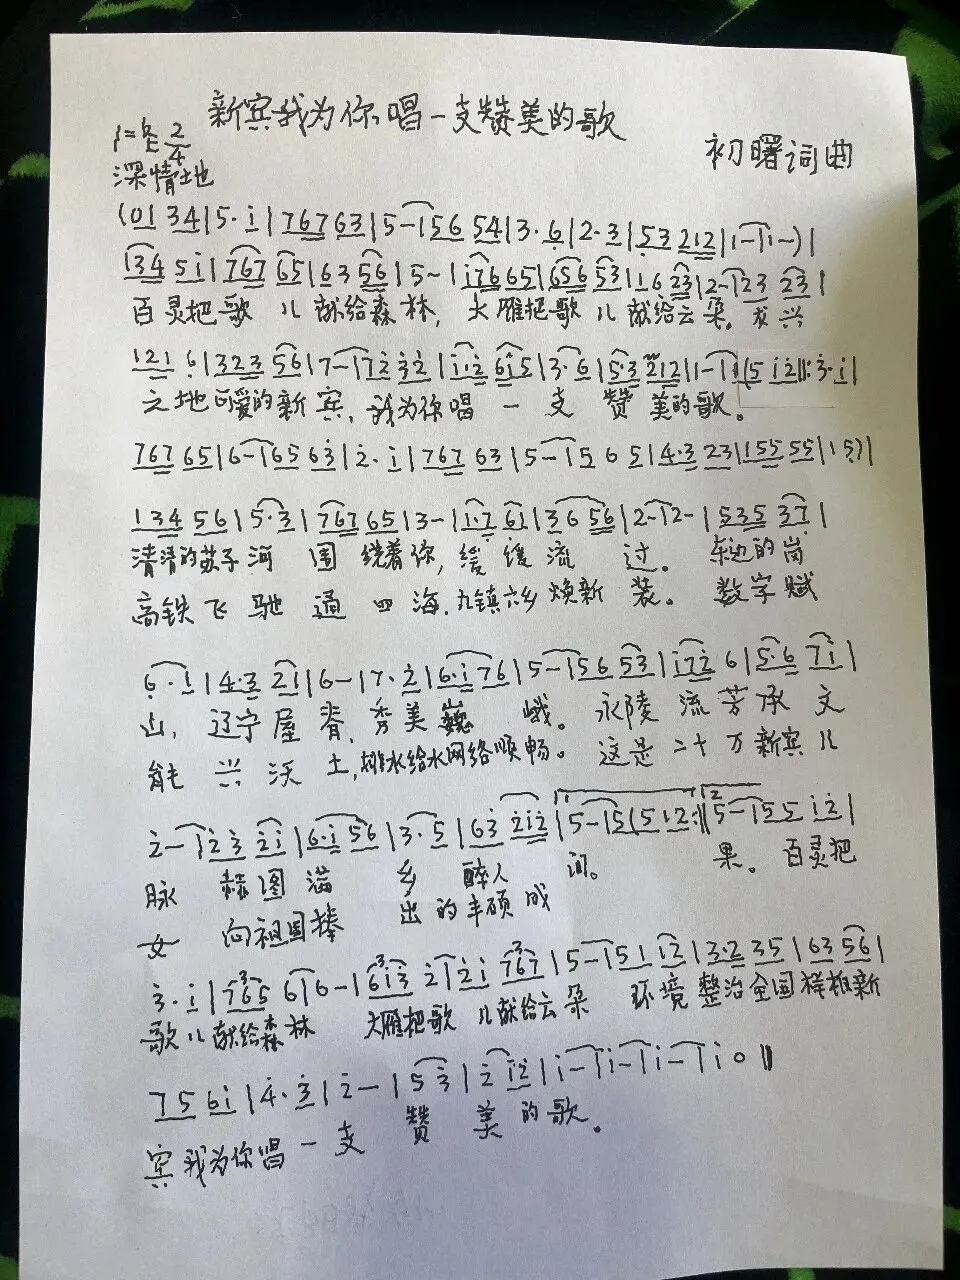 新宾我为你唱一支赞美的歌
1=♭E 2/4
初曙词曲
深情地
(01 34|5· i|767 63|5-|56 54|3· 6|2· 3|53 212|1-|1-)|
134 5i|767 65|63 56|5-|i76 65|656 53|16 23|2-|23 23|
百灵把歌儿献给森林,大雁把歌儿献给云朵。龙兴
121 6|323 56|7-|72 32|i·2 6i5|3· 6|5·3 212|1-|1(5 i2||:3· i|
之地可爱的新宾,我为你唱一支赞美的歌。
767 65|6-|65 63|2· i|767 63|5-|5 6 5|4·3 23|155 55|1 5)|
134 56|5· 3|767 65|3-|1·7 61|36 56|2-|2-|535 37|
清清的苏子河围绕着你,缓缓流过。东边的岗
高铁飞驰通四海.九镇六乡焕新装。数字赋
6· 1|4·3 21|6-|7· 2|6·i 76|5-|56 53|i72 6|5·6 7i|
山,辽宁屋脊,秀美巍峨。永陵流芳承文
能兴沃土,排水给水网络顺畅。这是二十万新宾儿
2-|23 2i|6·i 56|3· 5|63 2i2|5-|5(5 12:||5-|55 i2|
脉赫图满乡醉人间。果。百灵把
女向祖国捧出的丰硕成
3· i|765 6|6-|6i3 2|2i 767|5-|51 12|3·2 35|63 56|
歌儿献给森林 大雁把歌儿献给云朵 环境整治全国样板新
75 6i|4· 3|2-|5 3|2 i2|i-|i-|i-|i 0||
宾我为你唱一支赞美的歌。